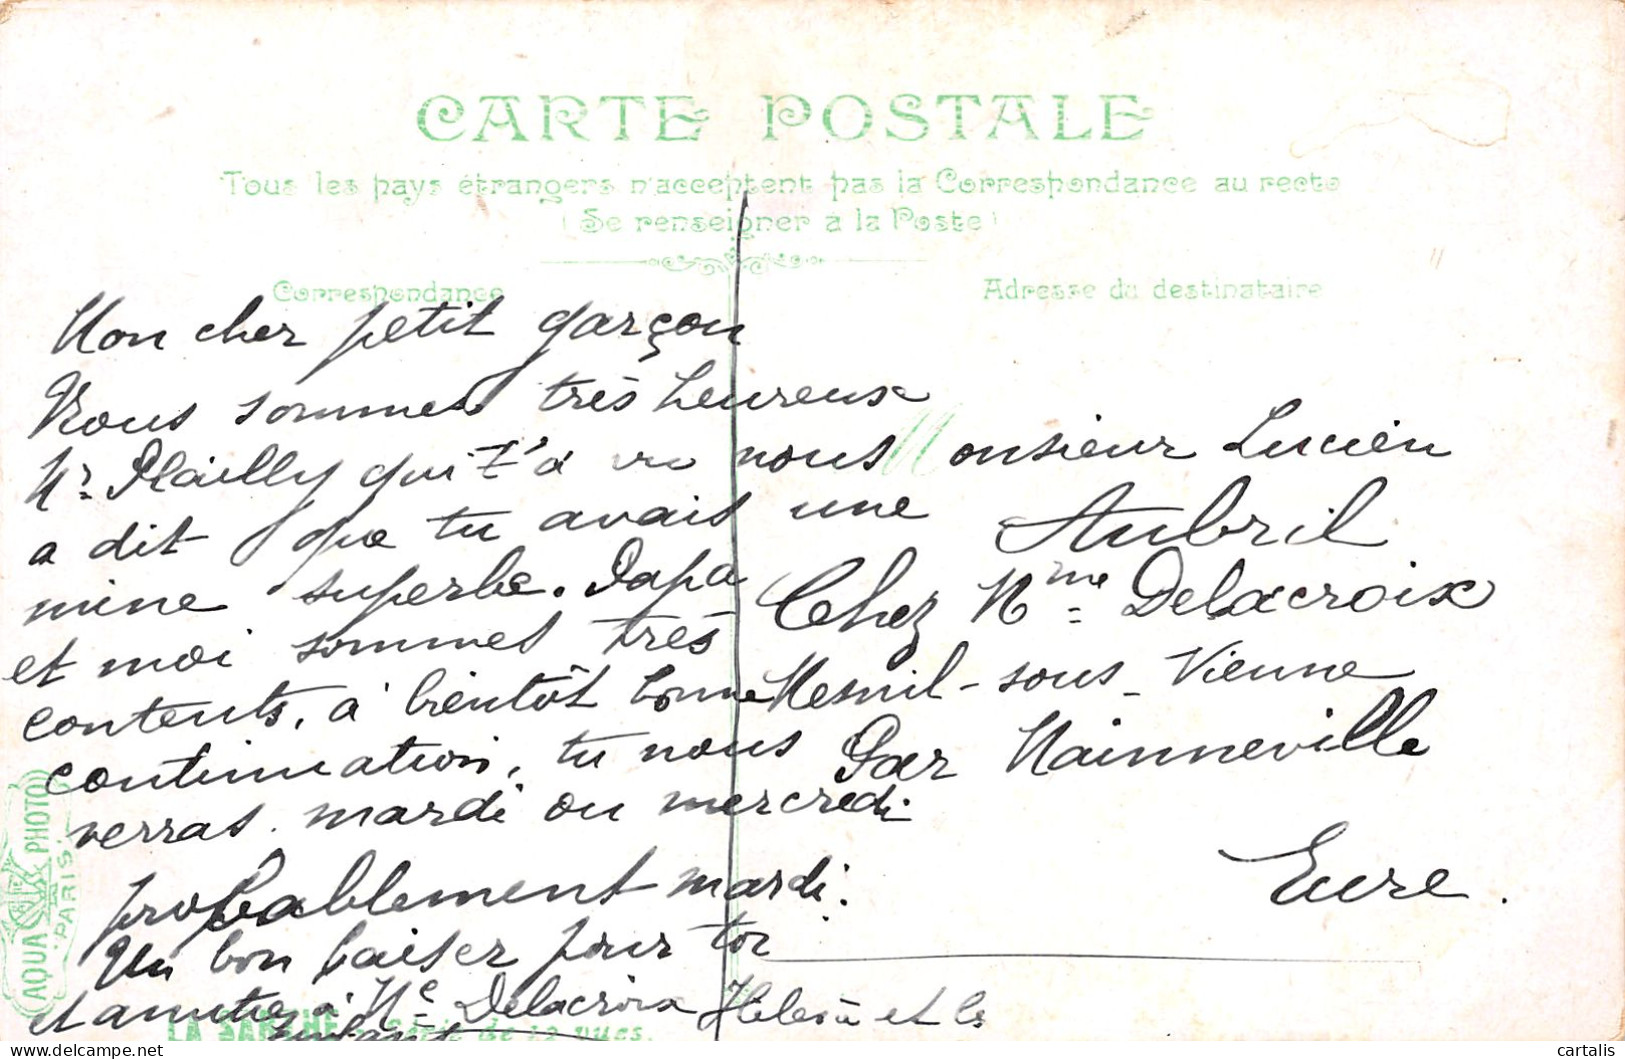 CARTE POSTALE
Tous les pays étrangers n'acceptent pas la Correspondance au recto
(Se renseigner à la Poste)
Correspondance
Mon cher petit garçon
Nous sommes très heureux
Mr Plailly qui t'a vu nous
a dit que tu avais une
mine superbe. Papa
et moi sommes très
contents, à bientôt bonne
continuation, tu nous
verras mardi ou mercredi
probablement mardi.
Un bon baiser pour toi
et amitiés à Me Delacroix et les
enfants
Adresse du destinataire
Monsieur Lucien
Aubril
Chez Mme Delacroix
Mesnil-sous-Vienne
Par Mainneville
Eure.
AQUA PHOTO
PARIS
LA SARTHE Série de 12 vues.
cartalis